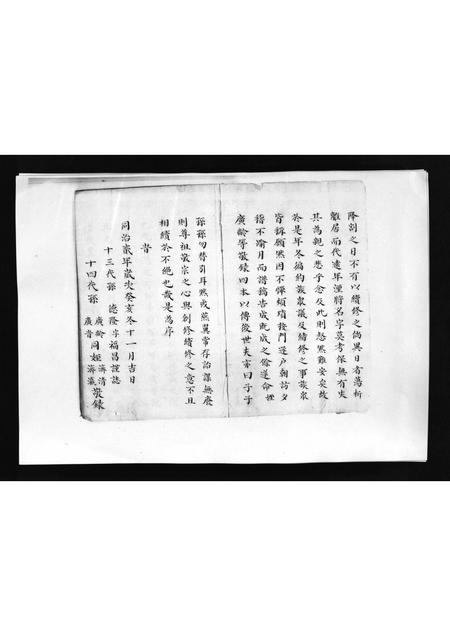 降割之日不有以續修之倘異日者蕩析
離居而代遠年湮將名字莫考保無有失
其為親之悲乎念及此則怒然難安矣故
於是年冬編約族眾議及續修之事族眾
皆訴願然因不憚煩瑣發門逐戶朝訪夕
稽不踰月而譜稿告成既成之餘遂命姪
廣齡等敬錄四本以傳後世夫亦曰子子
孫孫勿替引耳然或燕翼常存詒謀無廢
則尊祖敬宗之心與創修續修之意不且
相續於不絕也哉是為序
旹
同治貳年歲次癸亥冬十一月吉日
十三代孫 德隆字福昌謹誌
十四代孫 廣齡 同姪 濟清 敬錄
廣香 濟瀛